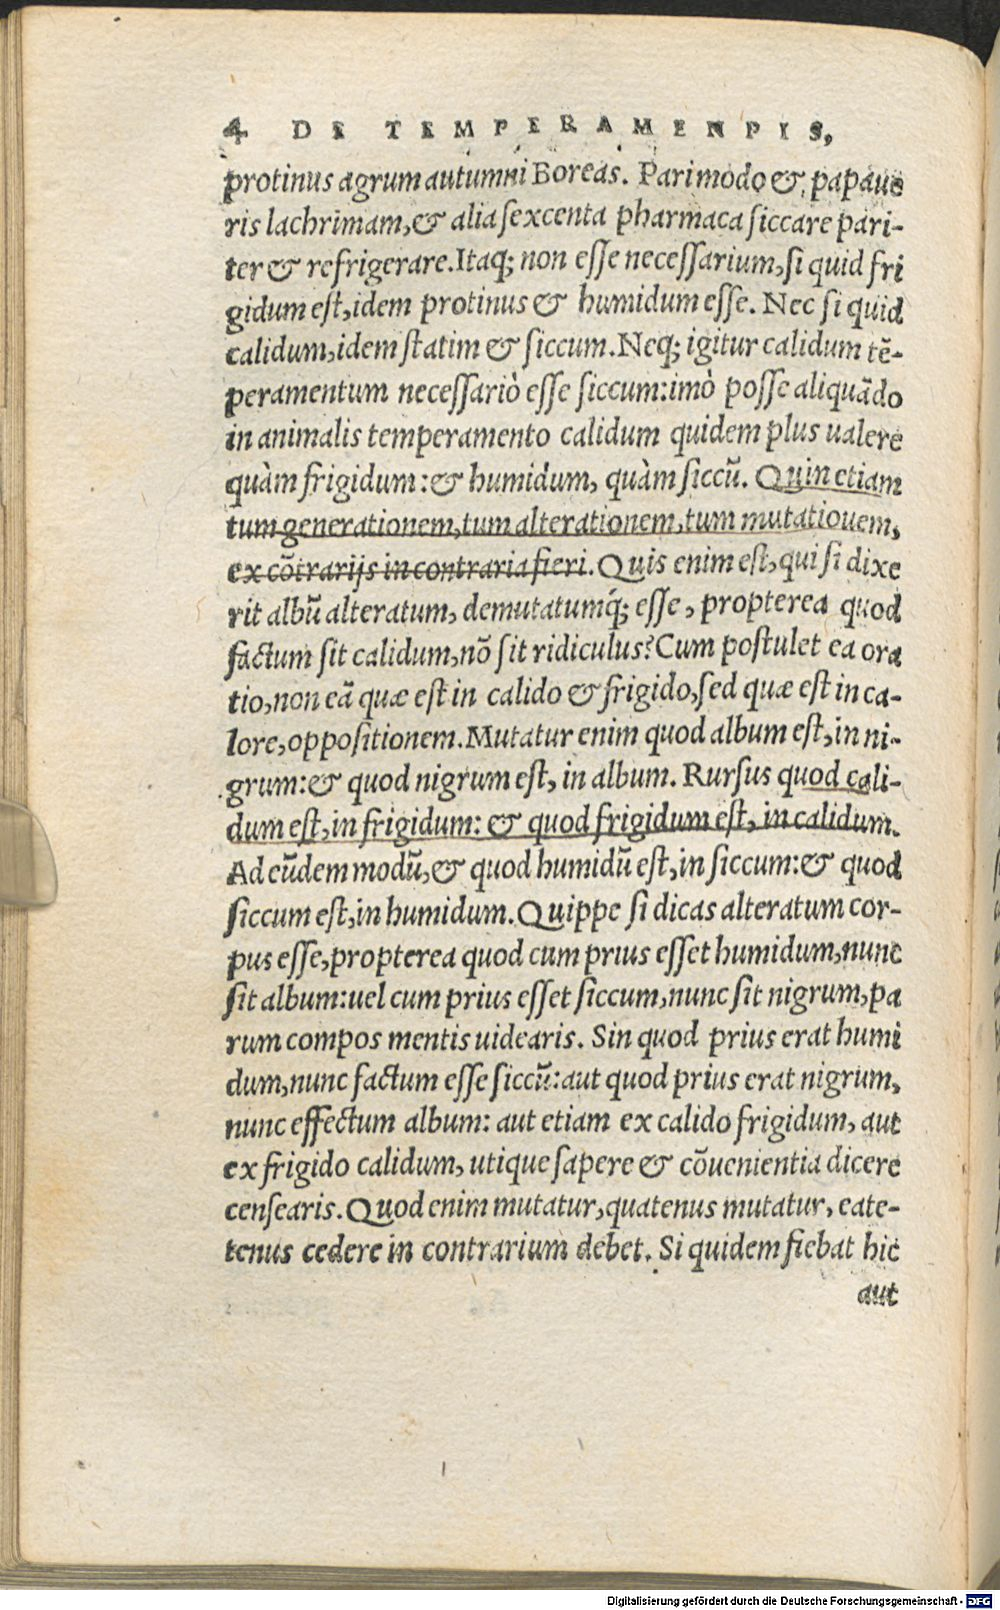 4 DE TEMPERAMENPIS,
protinus agrum autumni Boreas. Pari modo & papaue
ris lachrimam, & alia sexcenta pharmaca siccare pari-
ter & refrigerare. Itaq; non esse necessarium, si quid fri
gidum est, idem protinus & humidum esse. Nec si quid
calidum, idem statim & siccum. Neq; igitur calidum tē-
peramentum necessariò esse siccum: imò posse aliquādo
in animalis temperamento calidum quidem plus ualere
quàm frigidum: & humidum, quàm siccū. Quin etiam
tum generationem, tum alterationem, tum mutatiouem,
ex cōtrarijs in contraria fieri. Quis enim est, qui si dixe
rit albū alteratum, demutatumq́; esse, propterea quod
factum sit calidum, nō sit ridiculus? Cum postulet ea ora
tio, non eā quæ est in calido & frigido, sed quæ est in ca-
lore, oppositionem. Mutatur enim quod album est, in ni-
grum: & quod nigrum est, in album. Rursus quod cali-
dum est, in frigidum: & quod frigidum est, in calidum.
Ad eūdem modū, & quod humidū est, in siccum: & quod
siccum est, in humidum. Quippe si dicas alteratum cor-
pus esse, propterea quod cum prius esset humidum, nunc
sit album: uel cum prius esset siccum, nunc sit nigrum, pa
rum compos mentis uidearis. Sin quod prius erat humi
dum, nunc factum esse siccū: aut quod prius erat nigrum,
nunc effectum album: aut etiam ex calido frigidum, aut
ex frigido calidum, utique sapere & cōuenientia dicere
censearis. Quod enim mutatur, quatenus mutatur, eate-
tenus cedere in contrarium debet. Si quidem fiebat hic
aut
Digitalisierung gefördert durch die Deutsche Forschungsgemeinschaft - DFG